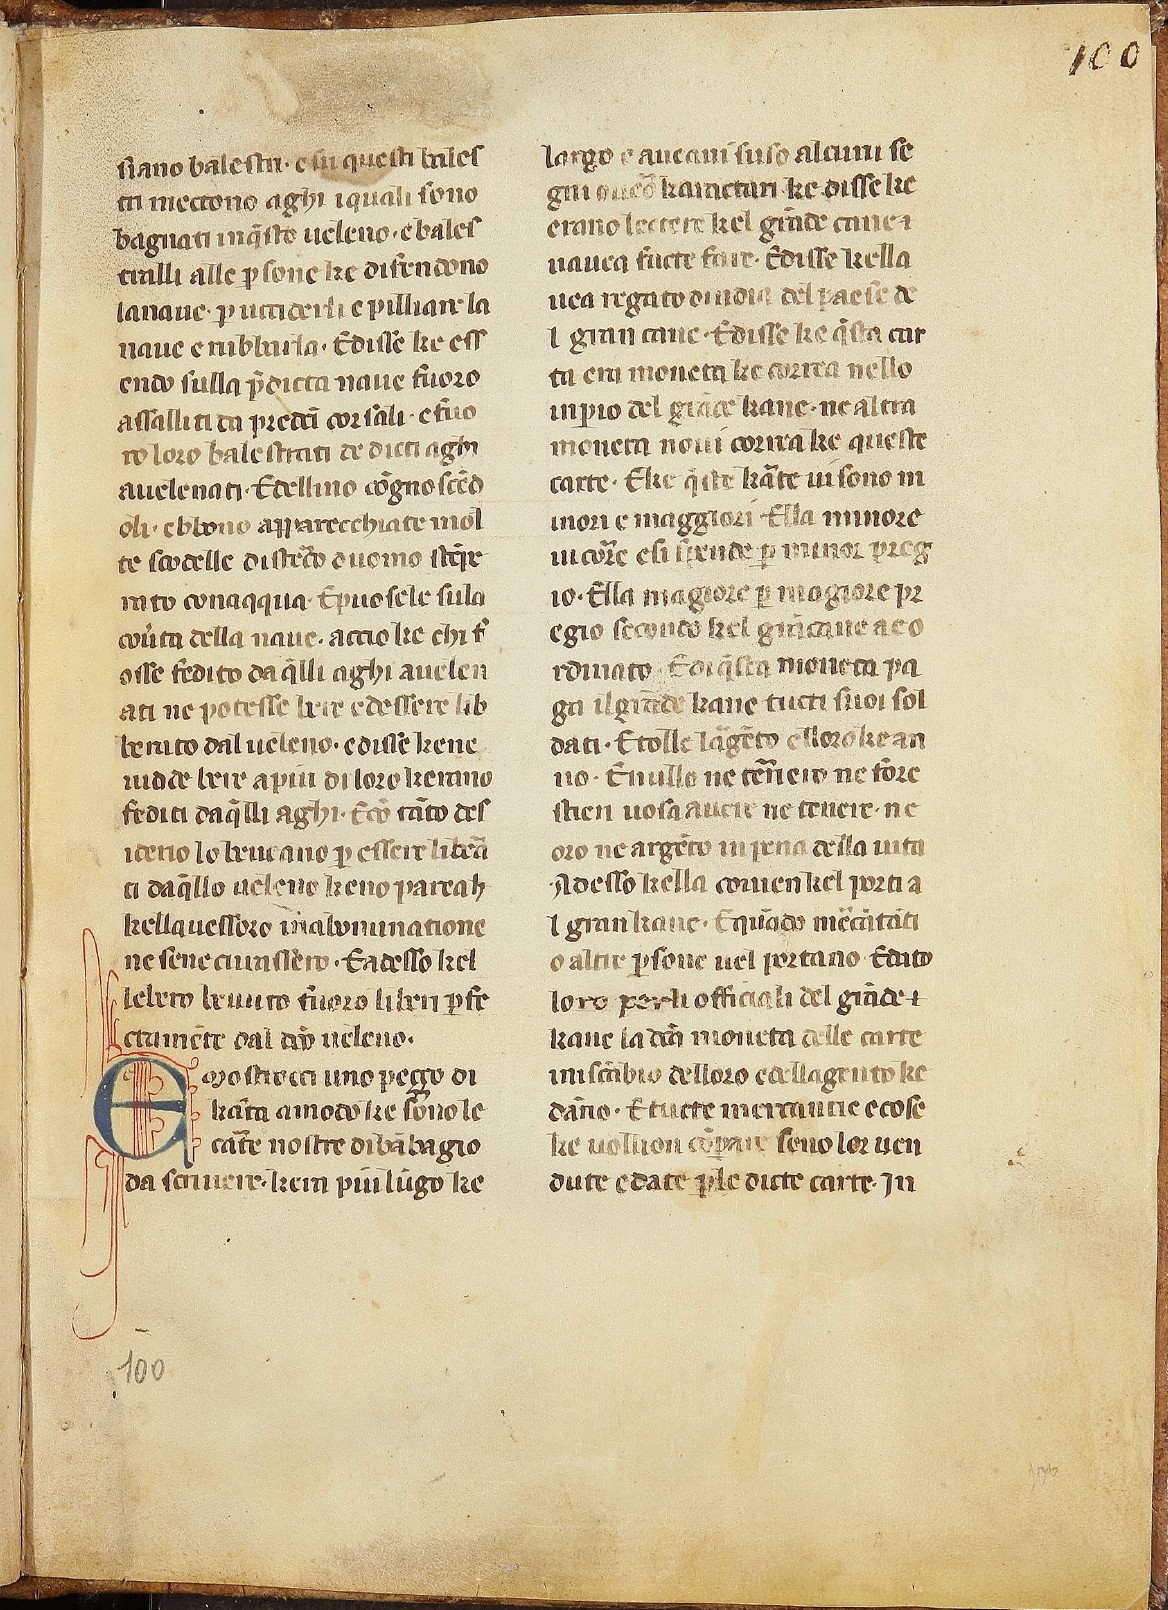 100
siano balestri · e su questi bales
tri mectono aghi i quali sono
bagnati in q̄sto ueleno · e bales
tralli alle ꝑsone ke difendono
la naue · ꝑ ucciderli e pilliare la
naue e rubbarla · E disse ke ess
endo sulla p̄dicta naue fuoro
assalliti da predc̄i corsali · e fuo
ro loro balestrati de dicti aghi
auelenati · Et ellino cōgnoscēd
oli · ebbono apparecchiate mol
te scodelle di sterc̄o d uomo stēpe
rato con aqqua · E puosele su la
couᵉta della naue · accio ke chi f
osse fedito da q̄lli aghi auelen
ati ne potesse bere ed essere lib
berato dal ueleno · e disse ke ne
uide bere a piu di loro k erano
fediti da q̄lli aghi · E cō tāto des
iderio lo beueano ꝑ essere liberā
ti da q̄llo ueleno ke no parea h
kell auessoro in abominatione
ne se ne curassero · E adesso kel
l ebero beuuto fuoro liberi ꝑfe
ctamēte dal dc̄o ueleno ·
E mostrocci uno peçço di
karta a modo ke sono le
carte nostre di bābagio
da scriuere · k era piu lūgo ke
largo e aueaui suso alcuni se
gni karactari ke disse ke
erano lectere kel grāde cane +
n auea facte fare · E disse kella
uea regato d india del paese de
l gran cane · E disse ke q̄sta car
ta era moneta ke correa nello
inpio del grāde kane · ne altra
moneta noui correa ke queste
carte · E ke q̄ste karte ui sono m
inori e maggiori · E lla minore
ui corre e si spende ꝑ minor preg
io · E lla magiore ꝑ magiore pr
egio secondo kel grācane a eo
rdinato · E di q̄sta moneta pa
ga il grāde kane tucti suoi sol
dati · E tolle l argēto e ll oro ke an
no · E nullo ne terriero ne fore
stieri u osa auere ne tenere · ne
oro ne argēto in pena della uita
Adesso kella comien kel porti a
l gran kane · E quādo mercatāti
o altre ꝑsone uel portano · E dato
loro per li officiali del grāde +
kane la dc̄a moneta delle carte
in iscābio dell oro e dell argento ke
dāno · E tucte mercantie e cose
ke uollion cōprare seno lor uen
dute e date ꝑ le dicte carte · In
100